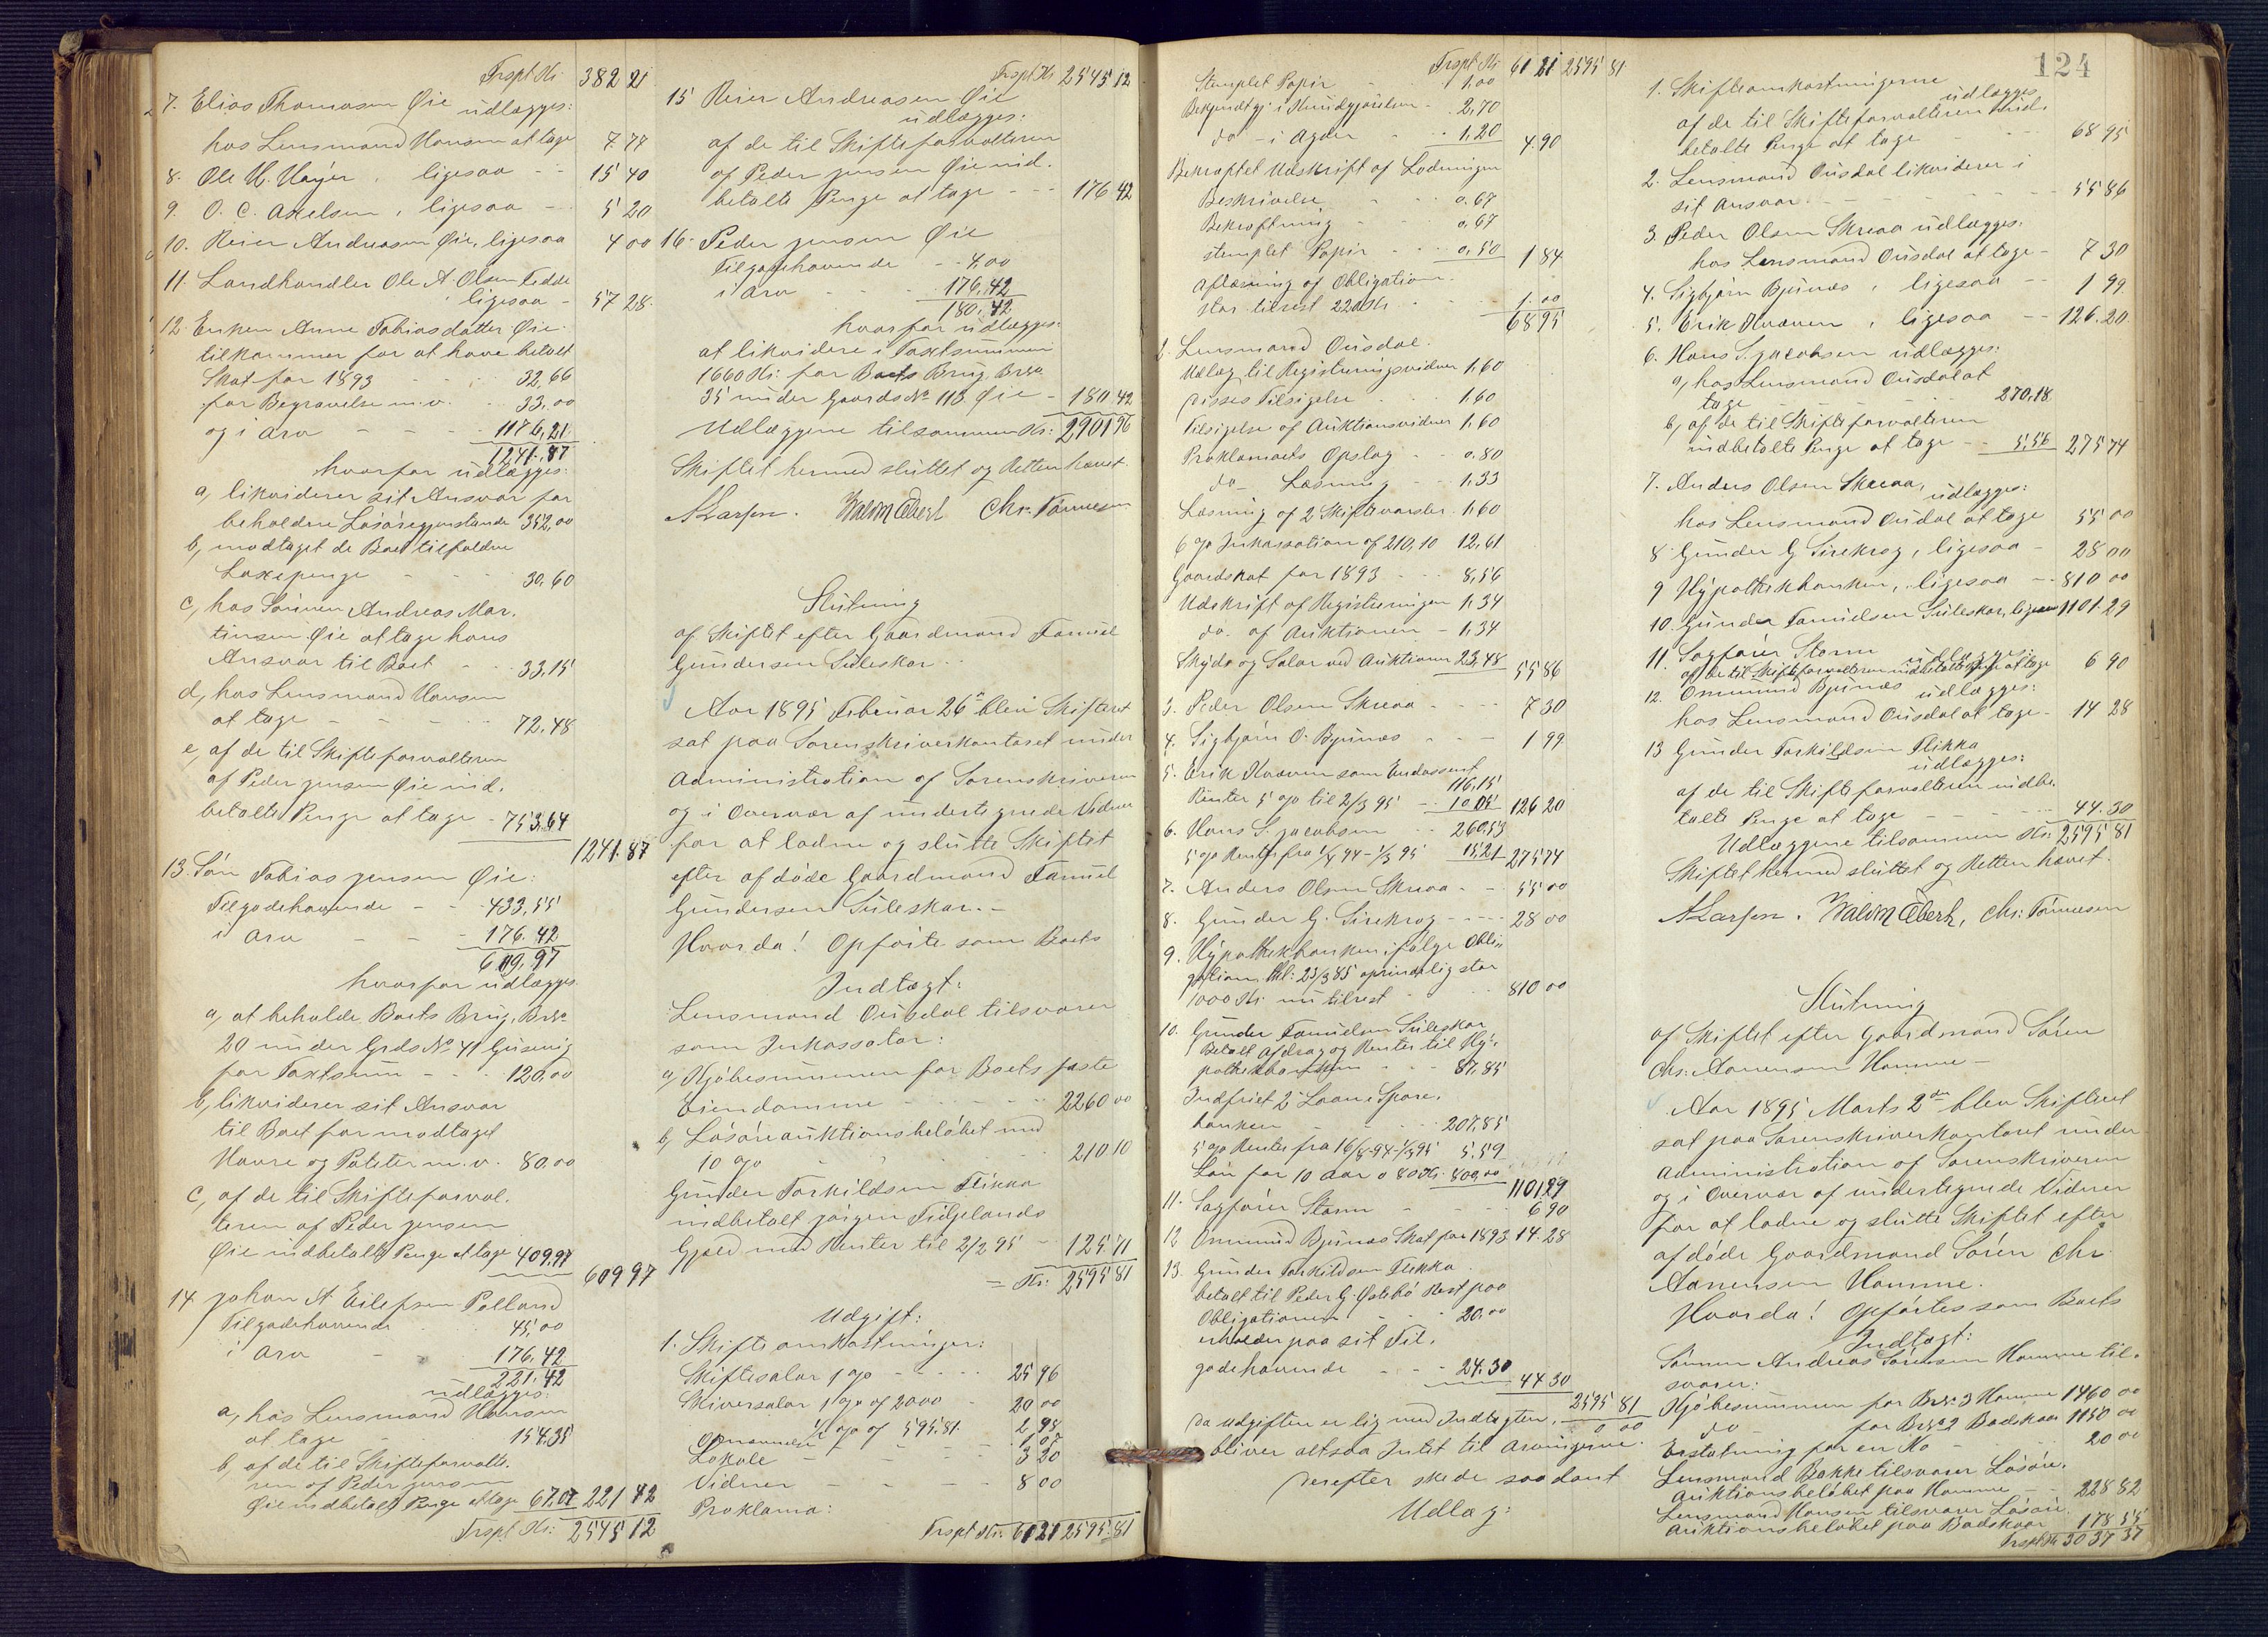 Trspt Kr. 382 21
7. Elias Thomasen Øie udlægges:
hos Lensmand Hansen at tage 7.77
8. Ole H. Høyer, ligesaa - - 15 40
9. O. C. Axelsen, ligesaa - 5 20
10. Reier Andreasen Øie, ligesaa 4 00
11. Landhandler Ole A. Olsen Fedde
ligesaa - 57 28.
12. Enken Anne Tobiasdatter Øie
tilkommer for at have betalt
Skat for 1893 - - 32,66
for Begravelse m.v. - 33,00
og i Arv - - - - 1176,21
1241.87
hvorfor udlægges:
a, likviderer sit Ansvar for
beholdne Løsøregjenstande 352,00
b, modtaget de Boet tilfaldne
Laxepenge - - 30.60
c, hos Sønnen Andreas Mar-
tinsen Øie at tage hans
Ansvar til Boet - - 33,15
d, hos Lensmand Hansen
at tage - - - - 72.48
e, af de til Skifteforvalteren
af Peder Jensen Øie ind-
betalte Penge at tage - 753.64
1241.87
13. Søn Tobias Jensen Øie:
Tilgodehavende - - 433,55
i Arv - - - 176.42
609,97
hvorfor udlægges
a, at beholde Boets Brug, Brs.
20 under Grds No 41 Gusevig
for Taxtsum - - - 120,00
b, likviderer sit Ansvar
til Boet for modtaget
Havre og Poteter m.v. 80.00
c, af de til Skifteforval-
teren af Peder Jensen
Øie indbetalte Penge at tage 409.97
609 97
14. Johan A. Eilefsen Polland
Tilgodehavende 45,00
i Arv - 176.42
221.42
udlægges:
a, hos Lensmand Hansen
at tage - 154.35
b, af de til Skifteforvalte-
ren af Peder Jensen
Øie indbetalte Penge at tage 67.07 221 42
Trspt. Kr: 2545 12
Trspt Kr 2545 12
15 Reier Andreasen Øie
udlægges:
af de til Skifteforvalteren
af Peder Jensen Øie ind-
betalte Penge at tage - - - 176 42
16. Peder Jensen Øie
Tilgodehavende - - 4,00
i Arv - - - 176.42
180,42
hvorfor udlægges:
at likvidere i Taxtsummen
1660 Kr. for Boets Brug, Brs.
35 under Gaards No 113 Øie - 180.42
Udlæggene tilsammen Kr: 2901 96
Skiftet hermed sluttet og Retten hævet.
A Larsen. Waldm Ebert Chr. Tønnesen
Slutning
af Skiftet efter Gaardmand Tamiel
Gundersen Suleskar -
Aar 1895 Februar 26de blev Skifteret
sat paa Sorenskriverkontoret under
Administration af Sorenskriveren
og i Overvær af undertegnede Vidner
for at lodne og slutte Skiftet
efter afdøde Gaardmand Tamiel
Gundersen Suleskar. -
Hvorda! Opførte som Boets
Indtægt:
Lensmand Ousdal tilsvarer
som Inkassator:
a, Kjøbesummen for Boets faste
Eiendomme - - - - - 2260 00
b, Løsøreauktionsbeløbet med
10 % - - - - 210 10
Gunder Torkildsen Flikka
indbetalt Jørgen Tidjelands
Gjæld med Renter til 2/3 95 - 125.71
= Kr: 2595 81
Udgift:
1. Skifteomkostninger:
Skiftesalar 1 % - - - - 25 96
Skiversalar 1 % af 2000 20 00
1/2 % af 595.81. 2,98
Opnævnelse - - 1,07
Lokale - - 3 20
Vidner - - - 8 00
Proklama:
Trspt. Kr: 61 21 2595.81
Trspt Kr 61 21 2595 81
Stemplet Papir - - 1.00
Bekjendtgj. i Kundgjørelsen - 2,70
do - i Agder - - 1.20 4.90
Bekræftet Udskrift af Lodningen
Beskrivelse - - 0.67
Bekræftning - - 0,67
stemplet Papir - - 0,50 1 84
Aflæsning af Obligation
stor tilrest 220 Kr - - 1.00
68 95
2. Lensmand Ousdal.
Udlæg til Registreringsvidner 1.60
disses Tilsigelse - 1.60
Tilsigelse af Auktionsvidner 1.60
Proklamaets Opslag - - 0.80
do - Læsning - - 1.33
Læsning af 2 Skiftevarsler 1.60
6 % Inkassation af 210,10 12,61
Gaardskat for 1893 - - 8,56
Udskrift af Registreringen 1,34
do. af Auktionen - 1.34
Skyds og Salar ved Auktionen 23,48 55 86
3. Peder Olsen Skreaa - - - - 7 30
4. Sigbjørn O. Bjunæs - - - 1 99
5. Erik Kvæven som Endossent
116,15
Renter 5 % til 2/3 95 - 10.05 126 20
6. Hans S. Jacobsen - 260.53
5 % Renter fra 1/1 94 - 1/3 95 15,21 275 74
7. Anders Olsen Skreaa - - 55 00
8. Gunder G. Sirekrog - - - - 28 00
9. Hypothekbanken, ifølge Obli-
gation thl: 23/3 85 oprindelig stor
1000 Kr. nu tilrest - - - 810 00
10. Gunder Tamielsen Suleskar
Betalt Afdrag og Renter til Hy-
pothekbanken - - - 87.85
Indfriet 2 Laan i Spare-
banken - - - 207,85
5 % Renter fra 16/8 94 - 1/3 95 5.59
Løn for 10 Aar a 80 Kr. 800,00
1101,29
11. Sagfører Storm - - - - 6 90
12. Ommund Bjunæs Skat for 1893 14.28
13. Gunder Torkildsen Flikka
betalt til Peder G. Østebø Rest paa
Obligationen - - 20,00
erholder paa sit Til-
godehavende - - - 24.30
44 30
2595 81
Da Udgiften er lig med Indtægten, 0 00
bliver altsaa Intet til Arvingerne.
Derefter skede saadant
Udlæg:
124
1. Skifteomkostningerne
udlægges
af de til Skifteforvalteren ind-
betalte Penge at tage - - - 68 95
2. Lensmand Ousdal likviderer i
sit Ansvar - - - - - 55 86
3. Peder Olsen Skreaa udlægges:
hos Lensmand Ousdal at tage - 7 30
4. Sigbjørn Bjunæs, ligesaa - - 1 99
5. Erik Kvæven, ligesaa - - 126.20
6. Hans S. Jacobsen udlægges:
a, hos Lensmand Ousdal at
tage - - - 270,18
b, af de til Skifteforvalteren
indbetalte Penge at tage - - 5,56 275 74
7. Anders Olsen Skreaa, udlægges:
hos Lensmand Ousdal at tage 55 00
8 Gunder G Sirekrog, ligesaa - 28 00
9 Hypothekbanken, ligesaa - - 810 00
10. Gunder Tamielsen Suleskar, ligesaa 1101.29
11. Sagfører Storm udlægges:
af de til Skifteforvalteren indbetalte Penge at tage 6 90
12. Ommund Bjunæs udlægges:
hos Lensmand Ousdal at tage - 14 28
13 Gunder Torkildsen Flikka
udlægges:
af de til Skifteforvalteren indbe-
talte Penge at tage - - - - 44.30
Udlæggene tilsammen Kr: 2595 81
Skiftet hermed sluttet og Retten hævet.
A Larsen. Waldm Ebert, Chr: Tønnesen
Slutning
af Skiftet efter Gaardmand Søren
Chr. Aanensen Homme -
Aar 1895 Marts 2den blev Skifteret
sat paa Sorenskriverkontoret under
Administration af Sorenskriveren
og i Overvær af undertegnede Vidner
for at lodne og slutte Skiftet efter
afdøde Gaardmand Søren Chr.
Aanensen Homme.
Hvorda! Opførtes som Boets
Indtægt:
Sønnen Andreas Sørensen Homme til-
svarer:
Kjøbesummen for Brs. 3 Homme 1460 00
do for Brs. 2 Badskaar 1150 00
Erstatning for en Ko - - 20 00
Lensmand Bakke tilsvarer Løsøre-
auktionsbeløbet paa Homme - - 228 82
Lensmand Hansen tilsvarer Løsøre-
auktionsbeløbet paa Badskaar 178 55
Trspt Kr 3037 37